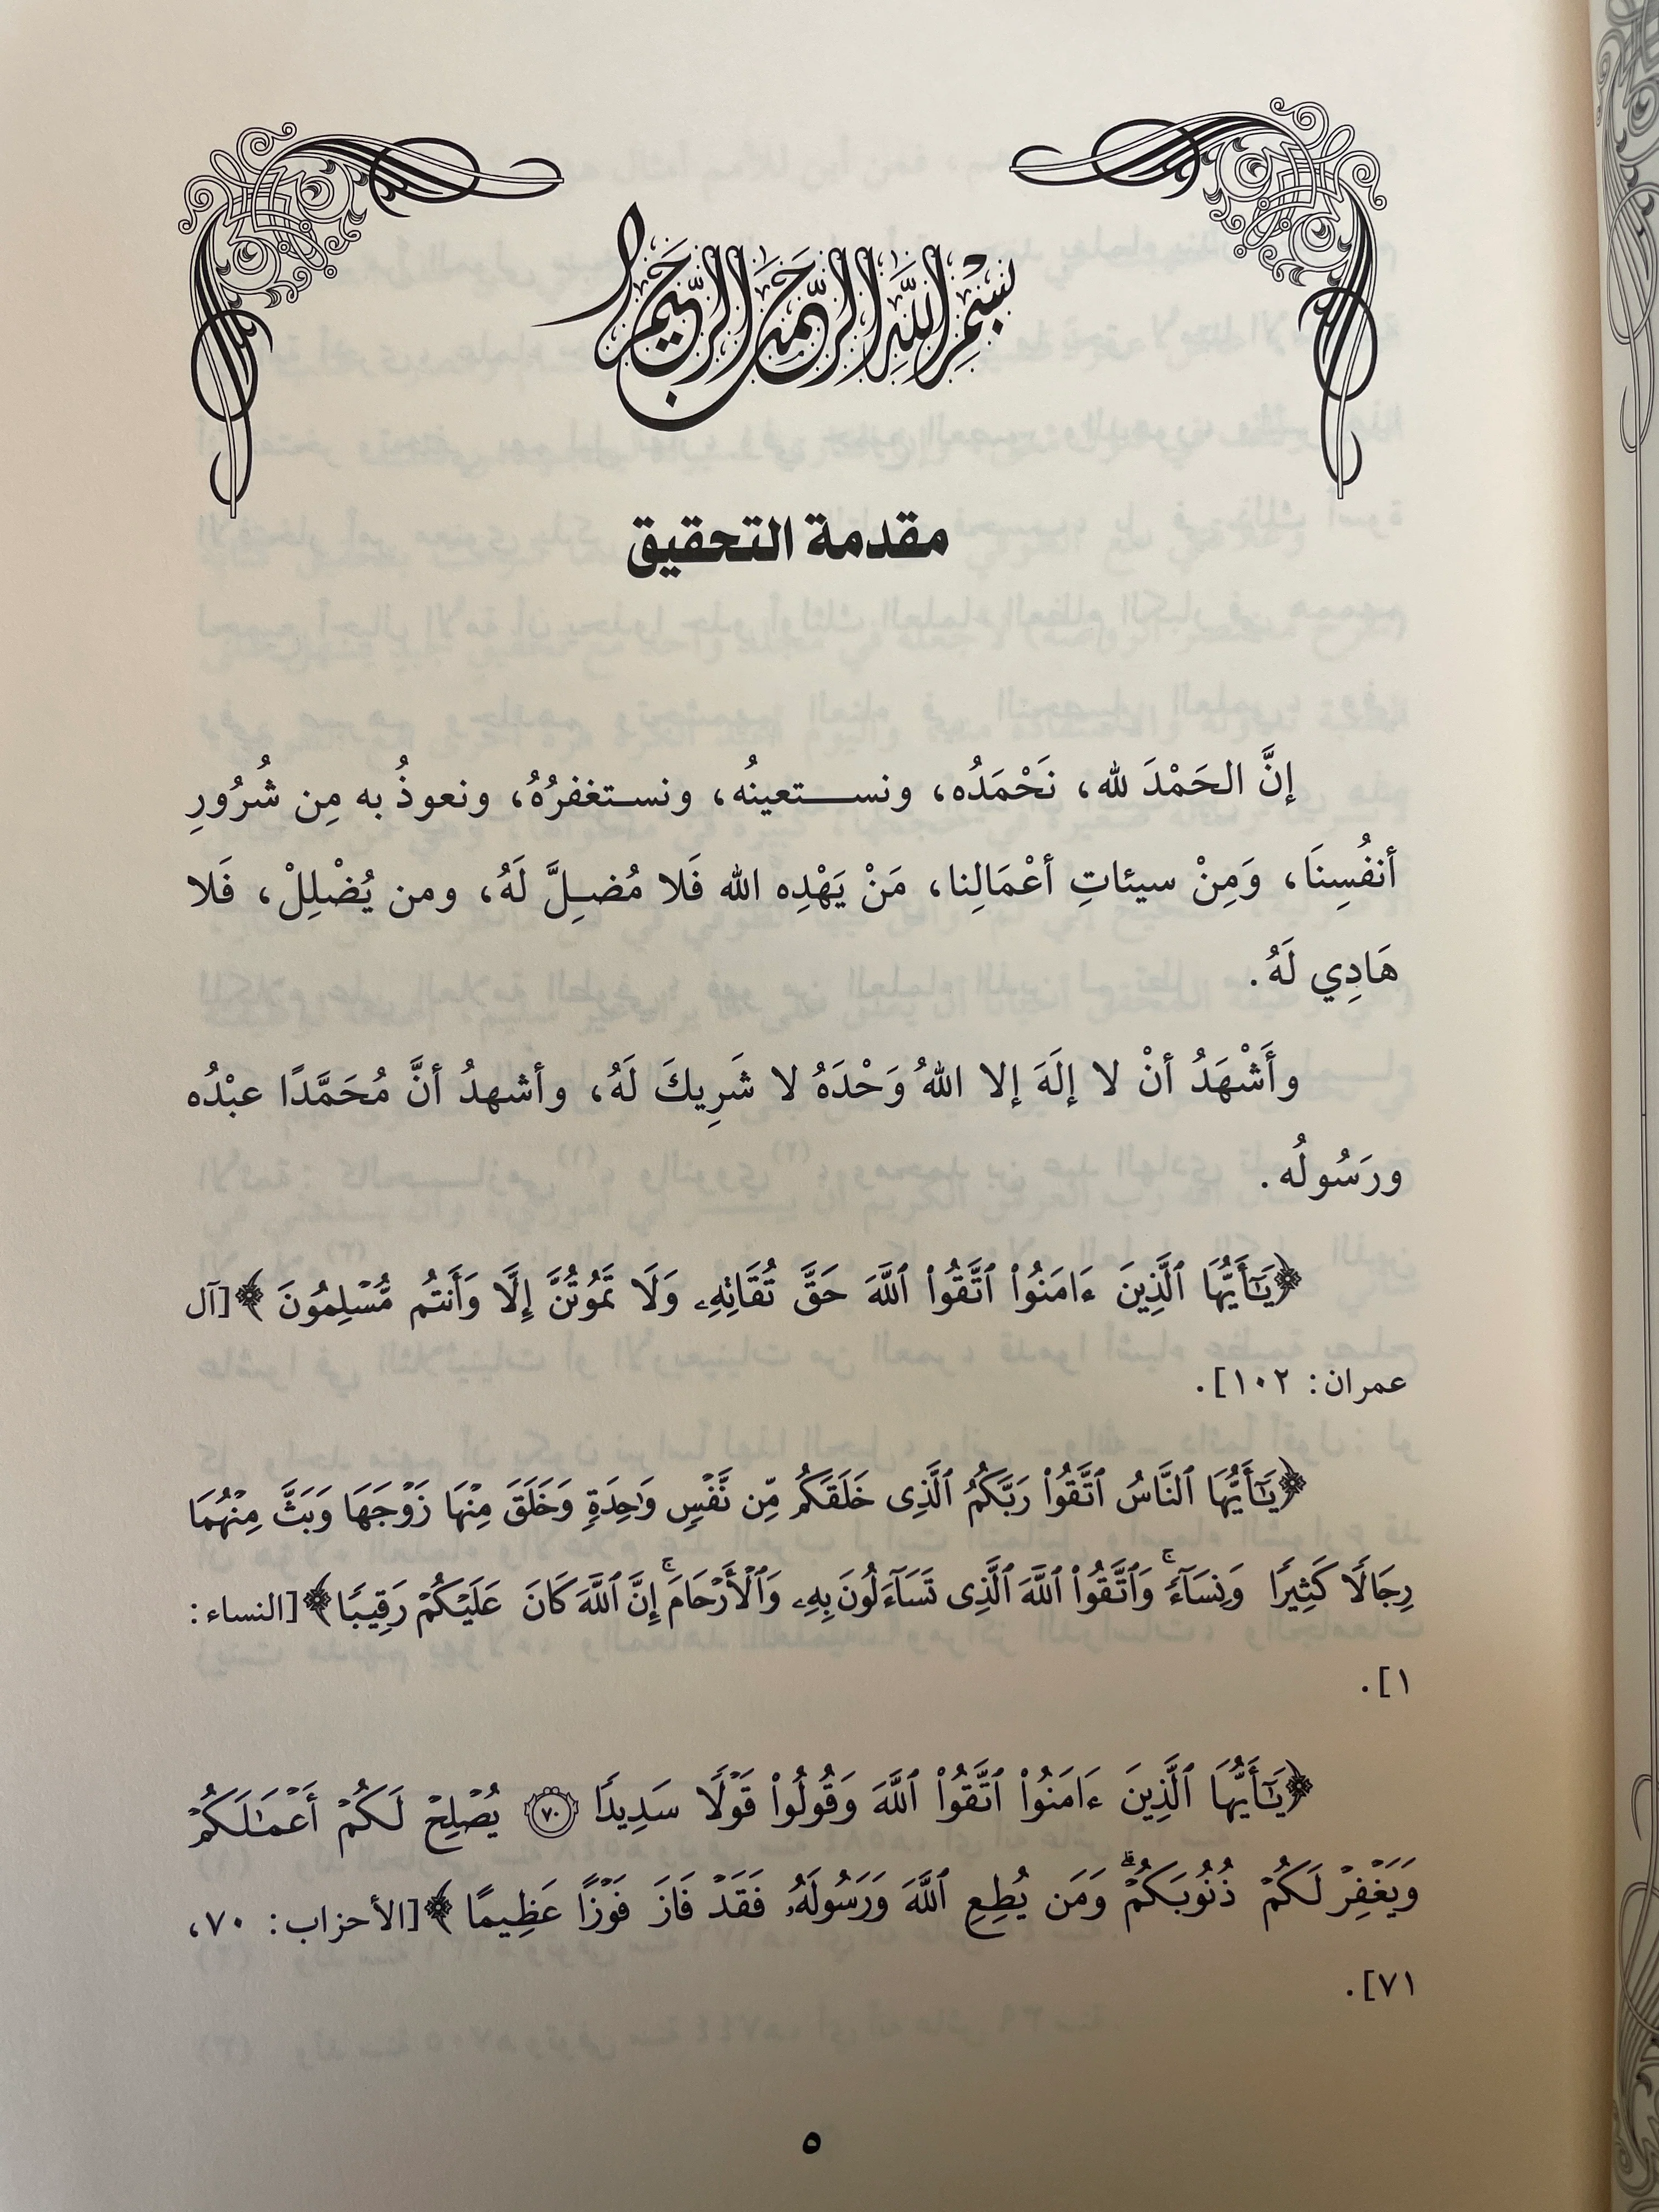 بسم الله الرحمن الرحيم
مقدمة التحقيق
إنَّ الحَمْدَ لله، نَحْمَدُه، ونستعينُه، ونستغفرُهُ، ونعوذُ به مِن شُرُورِ
أنفُسِنَا، وَمِنْ سيئاتِ أعْمَالِنا، مَنْ يَهْدِه الله فَلا مُضِلَّ لَهُ، ومن يُضْلِلْ، فَلا
هَادِي لَهُ.
وأَشْهَدُ أنْ لا إلَهَ إلا اللهُ وَحْدَهُ لا شَرِيكَ لَهُ، وأشهدُ أنَّ مُحَمَّدًا عبْدُه
ورَسُولُه.
﴿يَٰٓأَيُّهَا ٱلَّذِينَ ءَامَنُوا۟ ٱتَّقُوا۟ ٱللَّهَ حَقَّ تُقَاتِهِۦ وَلَا تَمُوتُنَّ إِلَّا وَأَنتُم مُّسْلِمُونَ﴾ [آل
عمران: ١٠٢].
﴿يَٰٓأَيُّهَا ٱلنَّاسُ ٱتَّقُوا۟ رَبَّكُمُ ٱلَّذِى خَلَقَكُم مِّن نَّفْسٍ وَٰحِدَةٍ وَخَلَقَ مِنْهَا زَوْجَهَا وَبَثَّ مِنْهُمَا
رِجَالًا كَثِيرًا وَنِسَآءً ۚ وَٱتَّقُوا۟ ٱللَّهَ ٱلَّذِى تَسَآءَلُونَ بِهِۦ وَٱلْأَرْحَامَ ۚ إِنَّ ٱللَّهَ كَانَ عَلَيْكُمْ رَقِيبًا﴾ [النساء:
١].
﴿يَٰٓأَيُّهَا ٱلَّذِينَ ءَامَنُوا۟ ٱتَّقُوا۟ ٱللَّهَ وَقُولُوا۟ قَوْلًا سَدِيدًا ٧٠ يُصْلِحْ لَكُمْ أَعْمَٰلَكُمْ
وَيَغْفِرْ لَكُمْ ذُنُوبَكُمْ ۗ وَمَن يُطِعِ ٱللَّهَ وَرَسُولَهُۥ فَقَدْ فَازَ فَوْزًا عَظِيمًا﴾ [الأحزاب: ٧٠،
٧١].
٥